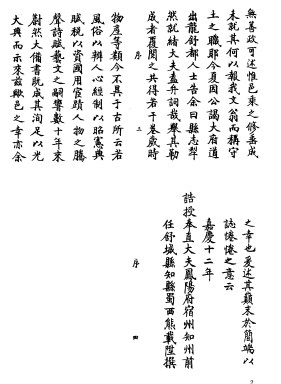 無善政可述惟邑乘之修垂成
未就其何以報我文翁而稱守
土之職耶今夏因公謁大府道
出龍舒都人士告余曰縣志犂
然就緒夫大夫盍弁詞哉舉其勒
成者覆閱之共得若干卷歲時
序 三
物產等類今不具于古所云若
風俗以辨人心經制以昭憲典
賦稅以資國用宦蹟人物之騰
聲詩賦藝文之嗣響數十年來
尉然大備書既成其洵足以光
大典而示來茲歟邑之幸亦余
之幸也爰述其顛末於簡端以
誌惓惓之意云
嘉慶十二年
誥授奉直大夫鳳陽府宿州知州前
任舒城縣知縣蜀西熊載陞撰
序 四